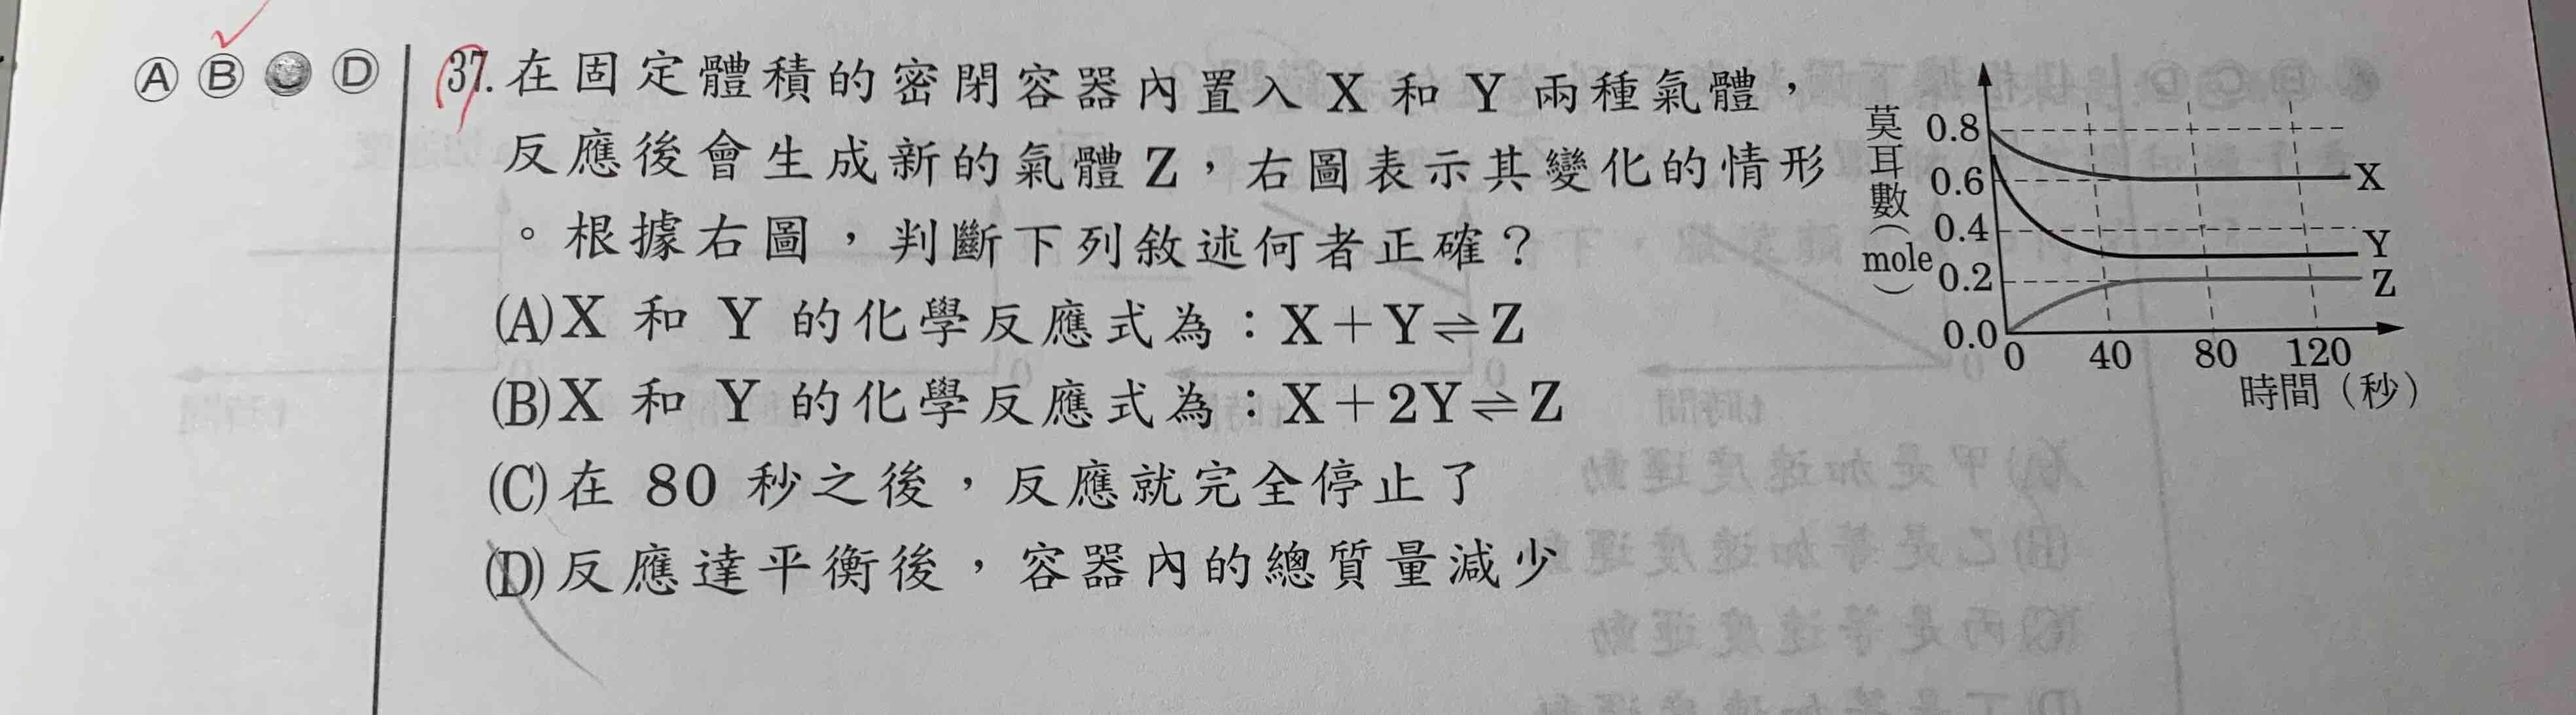 Ⓐ Ⓑ Ⓓ
37.在固定體積的密閉容器內置入 X 和 Y 兩種氣體，
反應後會生成新的氣體 Z，右圖表示其變化的情形
。根據右圖，判斷下列敘述何者正確？
(A)X 和 Y 的化學反應式為：X＋Y⇌Z
(B)X 和 Y 的化學反應式為：X＋2Y⇌Z
(C)在 80 秒之後，反應就完全停止了
(D)反應達平衡後，容器內的總質量減少
莫耳數（mole）
0.8
0.6
0.4
0.2
0.0
X
Y
Z
0 40 80 120
時間（秒）